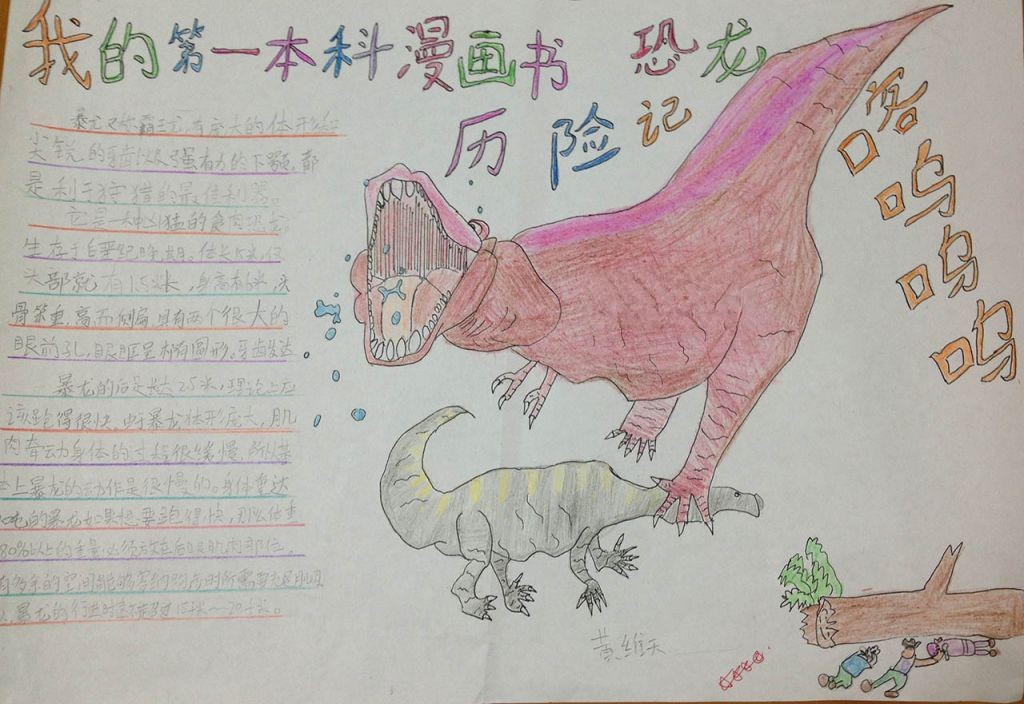 我的第一本科漫画书 恐龙
历险记
喀
呜
呜
呜
暴龙又称霸王龙,有庞大的体形和
尖锐的牙齿以及强有力的下颚,都
是利于狩猎的最佳利器。
它是一种凶猛的食肉恐龙。
生存于白垩纪晚期。体长15米,仅
头部就有1.5米长,身高有6米,头
骨笨重,高而侧扁,具有两个很大的
眼前孔,眼眶呈椭圆形。牙齿发达
暴龙的后足长大2.5米,理论上应
该跑得很快,由于暴龙体形庞大,肌
肉牵动身体的过程很缓慢,所以基
本上暴龙的动作是很慢的。身体重达
吨的暴龙如果想要跑得快,那么体重
80%以上的重量必须放在后足肌肉部位,
有多余的空间能够
暴龙的行进时速
黄维天